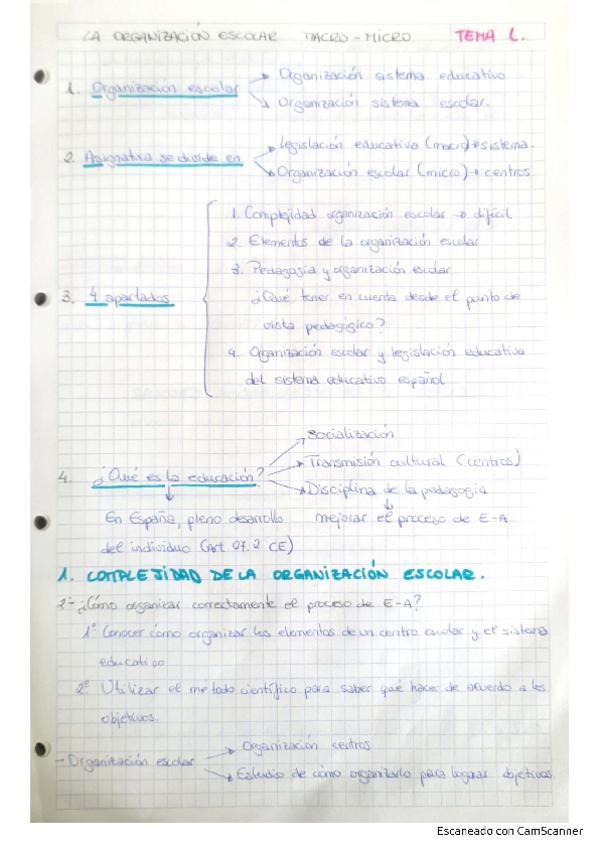 LA ORGANIZACIÓN ESCOLAR MACRO-MICRO TEMA 1.
1. Organización escolar → Organización sistema educativo
→ Organización sistema escolar.
2. Asignatura se divide en → Legislación educativa (macro) → sistema.
→ Organización escolar (micro) → centros
1. Complejidad organización escolar → difícil
2. Elementos de la organización escolar
3. Pedagogía y organización escolar
3. 4 apartados
¿Qué tener en cuenta desde el punto de
vista pedagógico?
4. Organización escolar y legislación educativa
del sistema educativo español
→ Socialización
→ Transmisión cultural (centros)
4. ¿Qué es la educación? → Disciplina de la pedagogía
↓ ↓
En España, pleno desarrollo mejorar el proceso de E-A
del individuo (Art 27.2 CE)
1. COMPLEJIDAD DE LA ORGANIZACIÓN ESCOLAR.
- ¿Cómo organizar correctamente el proceso de E-A?
1º Conocer cómo organizar los elementos de un centro escolar y el sistema
educativo
2º Utilizar el método científico para saber qué hacer de acuerdo a los
objetivos.
→ Organización centros
- Organización escolar
→ Estudio de cómo organizarlo para lograr objetivos.
Escaneado con CamScanner